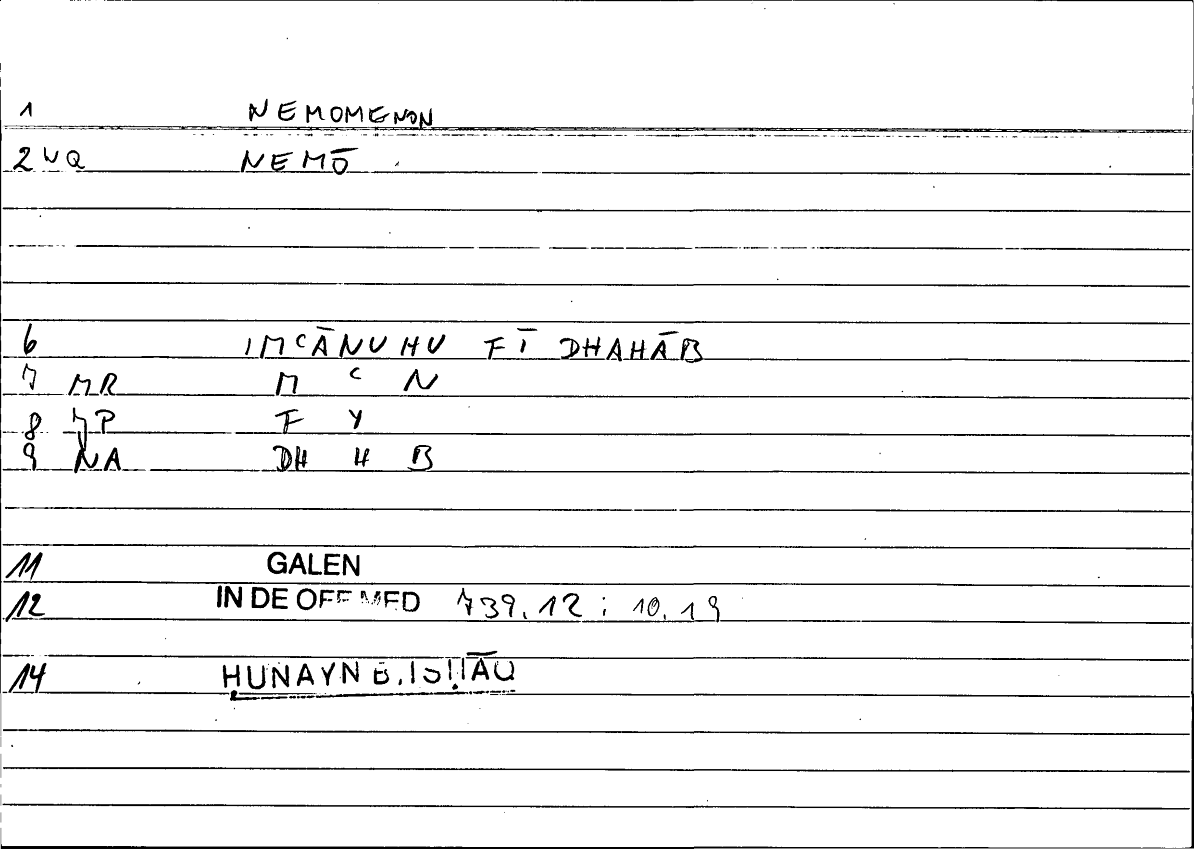 1 NEMOMENON
2 VQ NEMŌ
6 IMʿĀNUHU FĪ DHAHĀB
7 MR M ʿ N
8 7P F Y
9 NA DH H B
11 GALEN
12 IN DE OFF MED 739,12 ; 10,19
14 ḤUNAYN B. ISḤĀQ